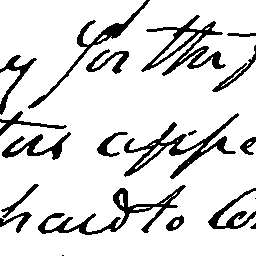 y for the
tus appe
hard to Con